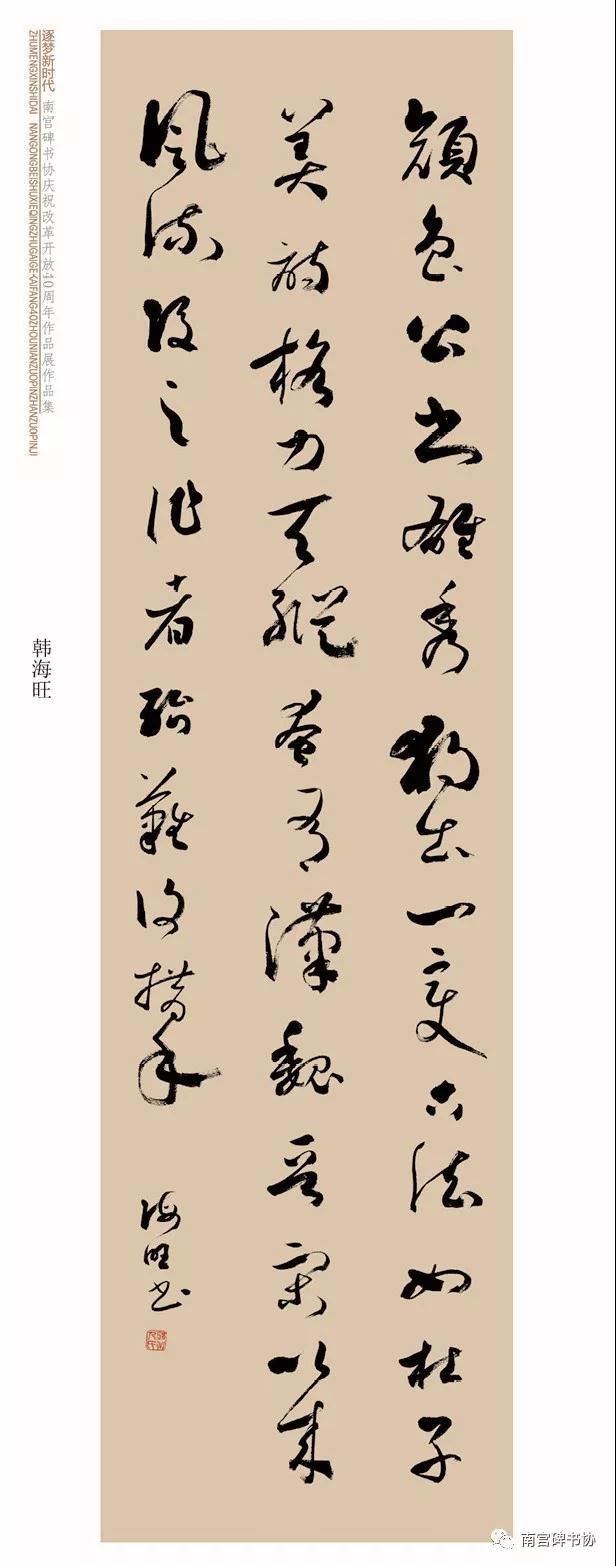 顏魯公書雄秀獨出一變古法如杜子
美詩格力天縱奄有漢魏晉宋以來
風流後之作者殆難復措手
海旺书
逐梦新时代 南宫碑书协庆祝改革开放40周年作品展作品集
ZHUMENGXINSHIDAI NANGONGBEISHUXIEQINGZHUGAIGEKAIFANG40ZHOUNIANZUOPINZHANZUOPINJI
韩海旺
南宫碑书协